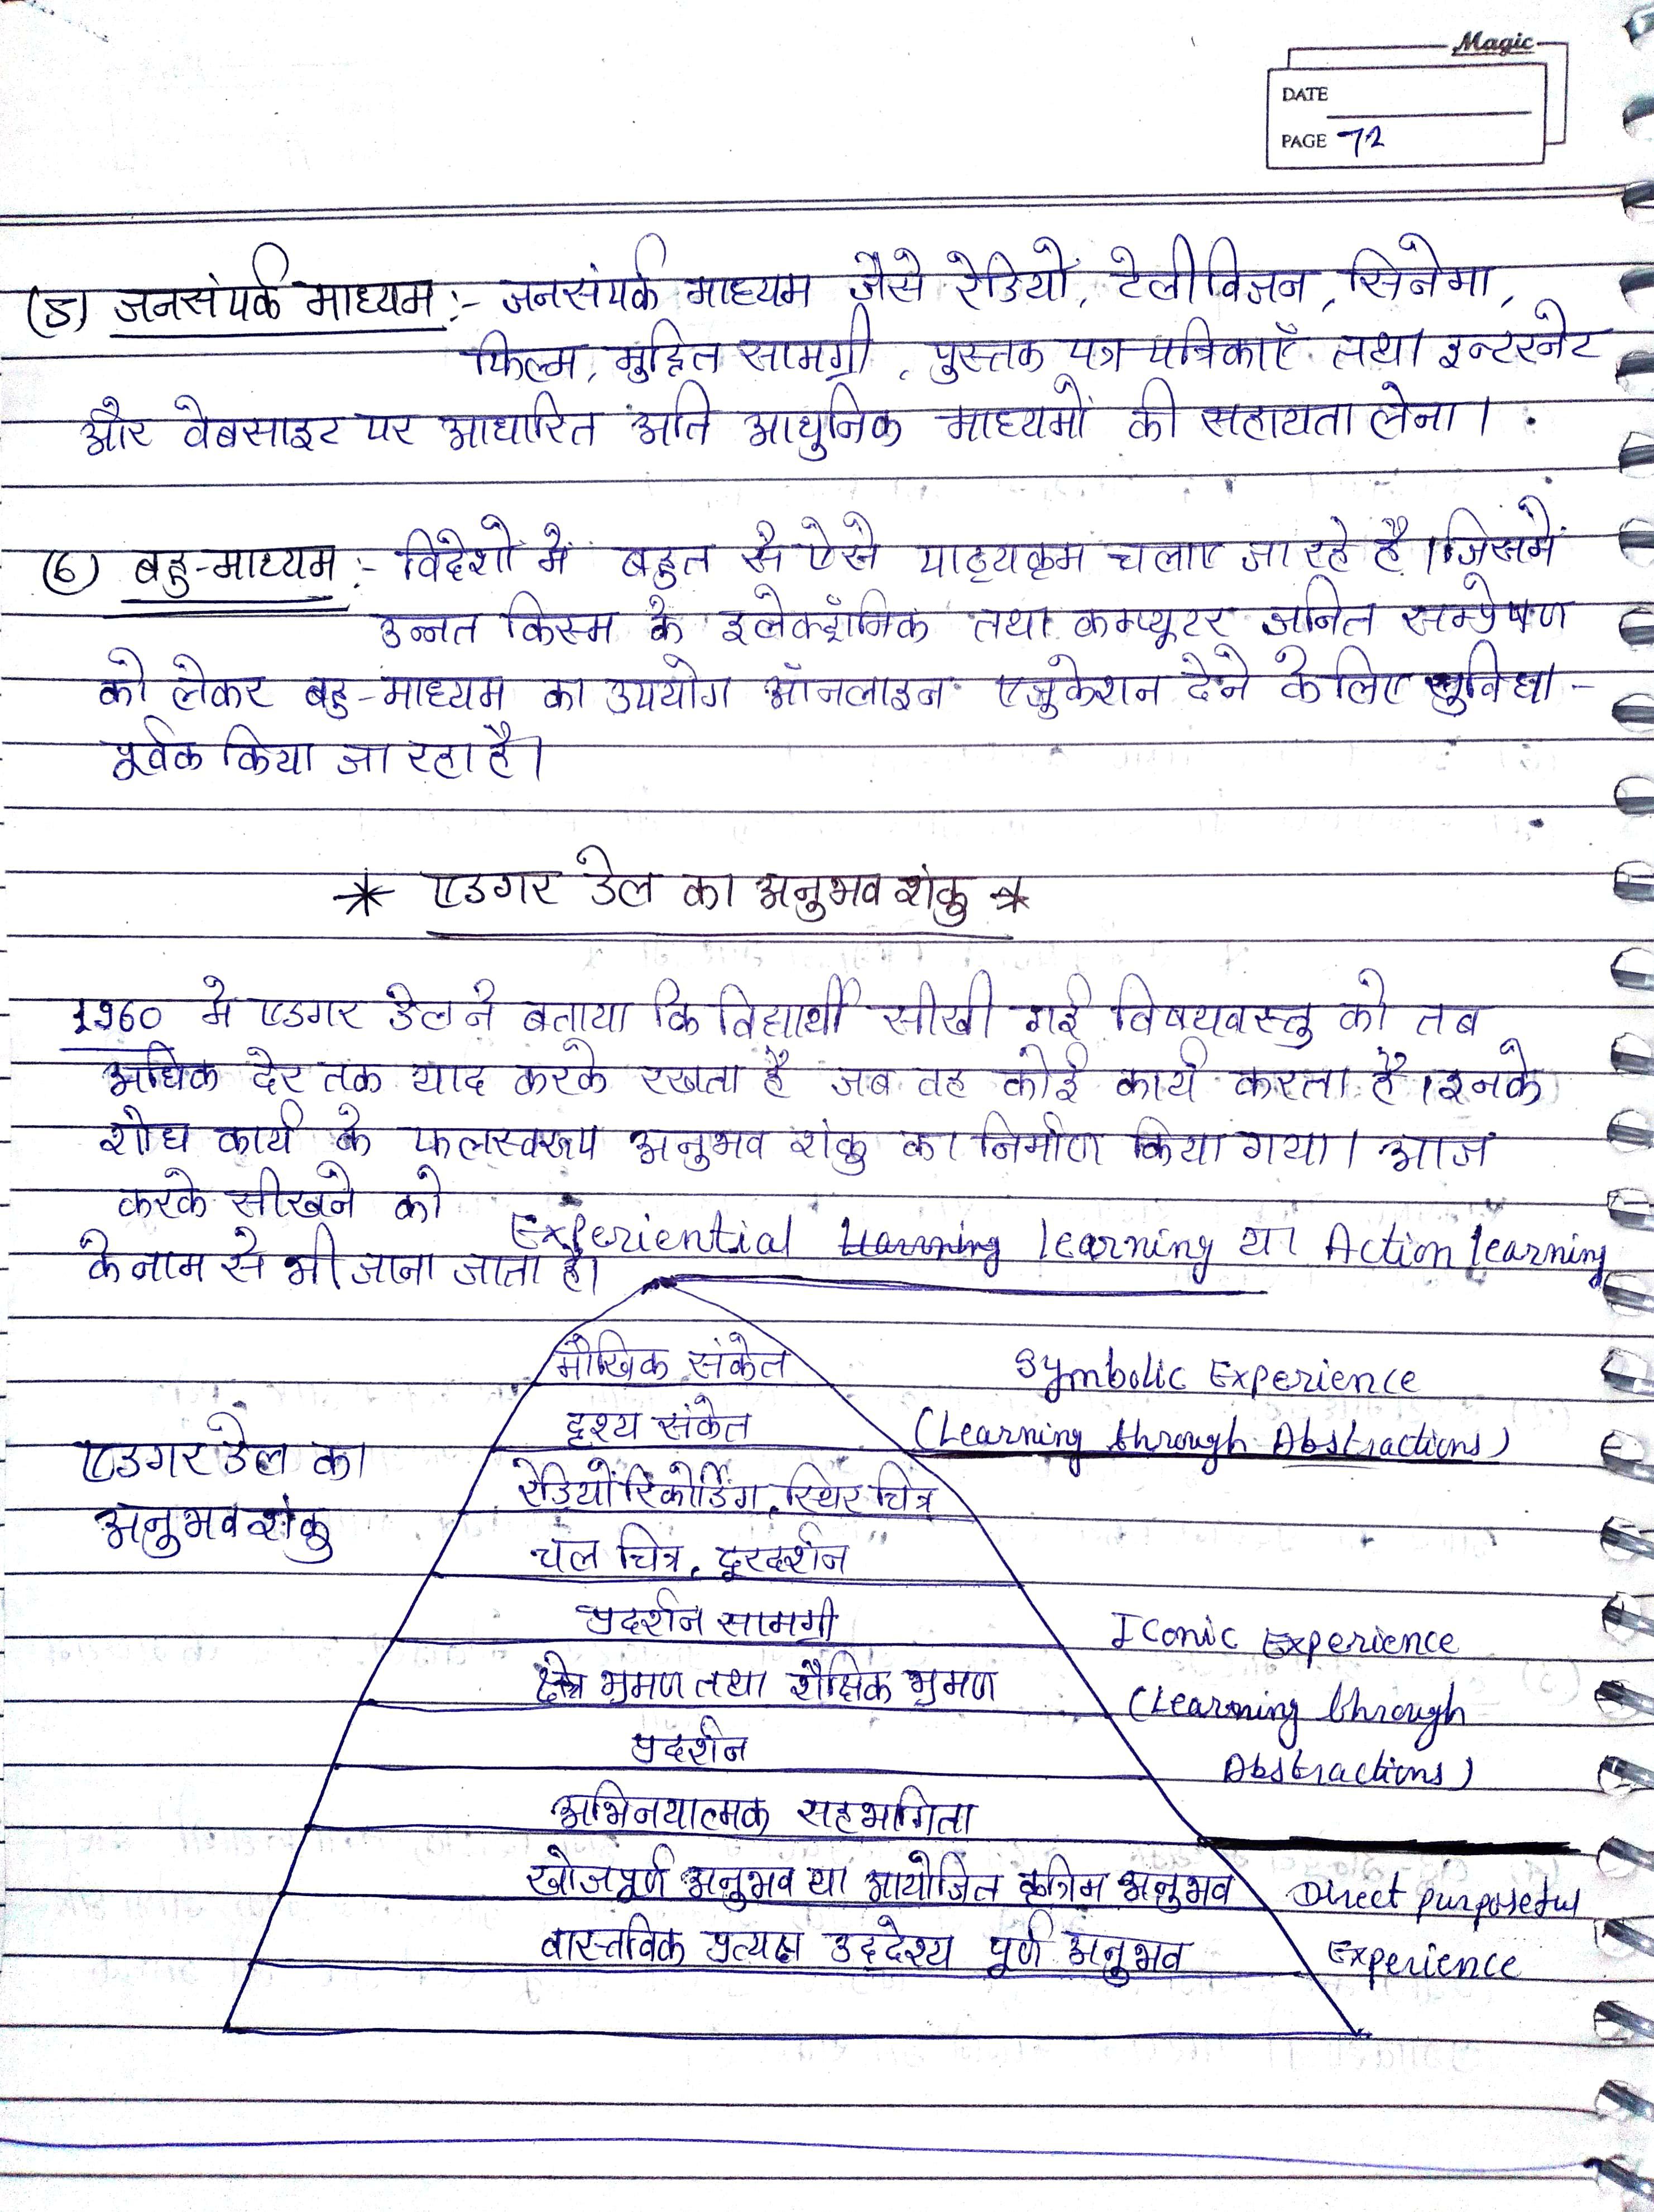 Magic
DATE
PAGE 72
(5) जनसंपर्क माध्यम :- जनसंपर्क माध्यम जैसे रेडियों, टेलीविजन, सिनेमा,
फिल्म, मुद्रित सामग्री, पुस्तक पत्र-पत्रिकाएँ तथा इन्टरनेट
और वेबसाइट पर आधारित अति आधुनिक माध्यमों की सहायता लेना।
(6) बहु-माध्यम :- विदेशों में बहुत से ऐसे पाठ्यक्रम चलाए जा रहे है। जिसमें
उन्नत किस्म के इलेक्ट्रॉनिक तथा कम्प्यूटर जनित सम्प्रेषण
को लेकर बहु-माध्यम का उपयोग ऑनलाइन एजुकेशन देने के लिए सुविधा-
पूर्वक किया जा रहा है।
* एडगर डेल का अनुभव शंकु *
1960 मे एडगर डेल ने बताया कि विद्यार्थी सीखी गई विषयवस्तु को तब
अधिक देर तक याद करके रखता है जब वह कोई कार्य करता है। इनके
शोध कार्य के फलस्वरूप अनुभव शंकु का निर्माण किया गया। आज
करके सीखने को Experiential learning या Action learning
के नाम से भी जाना जाता है।
मौखिक संकेत
Symbolic Experience
दृश्य संकेत
(Learning through Abstractions)
एडगर डेल का
अनुभव शंकु
रेडियों रिकोर्डिंग, स्थिर चित्र
चल चित्र, दूरदर्शन
प्रदर्शन सामग्री
Iconic Experience
क्षेत्र भ्रमण तथा शैक्षिक भ्रमण
(Learning through
प्रदर्शन
Abstractions)
अभिनयात्मक सहभागिता
खोजपूर्ण अनुभव या आयोजित कृत्रिम अनुभव
Direct purposeful
वास्तविक प्रत्यक्ष उद्देश्य पूर्ण अनुभव
Experience